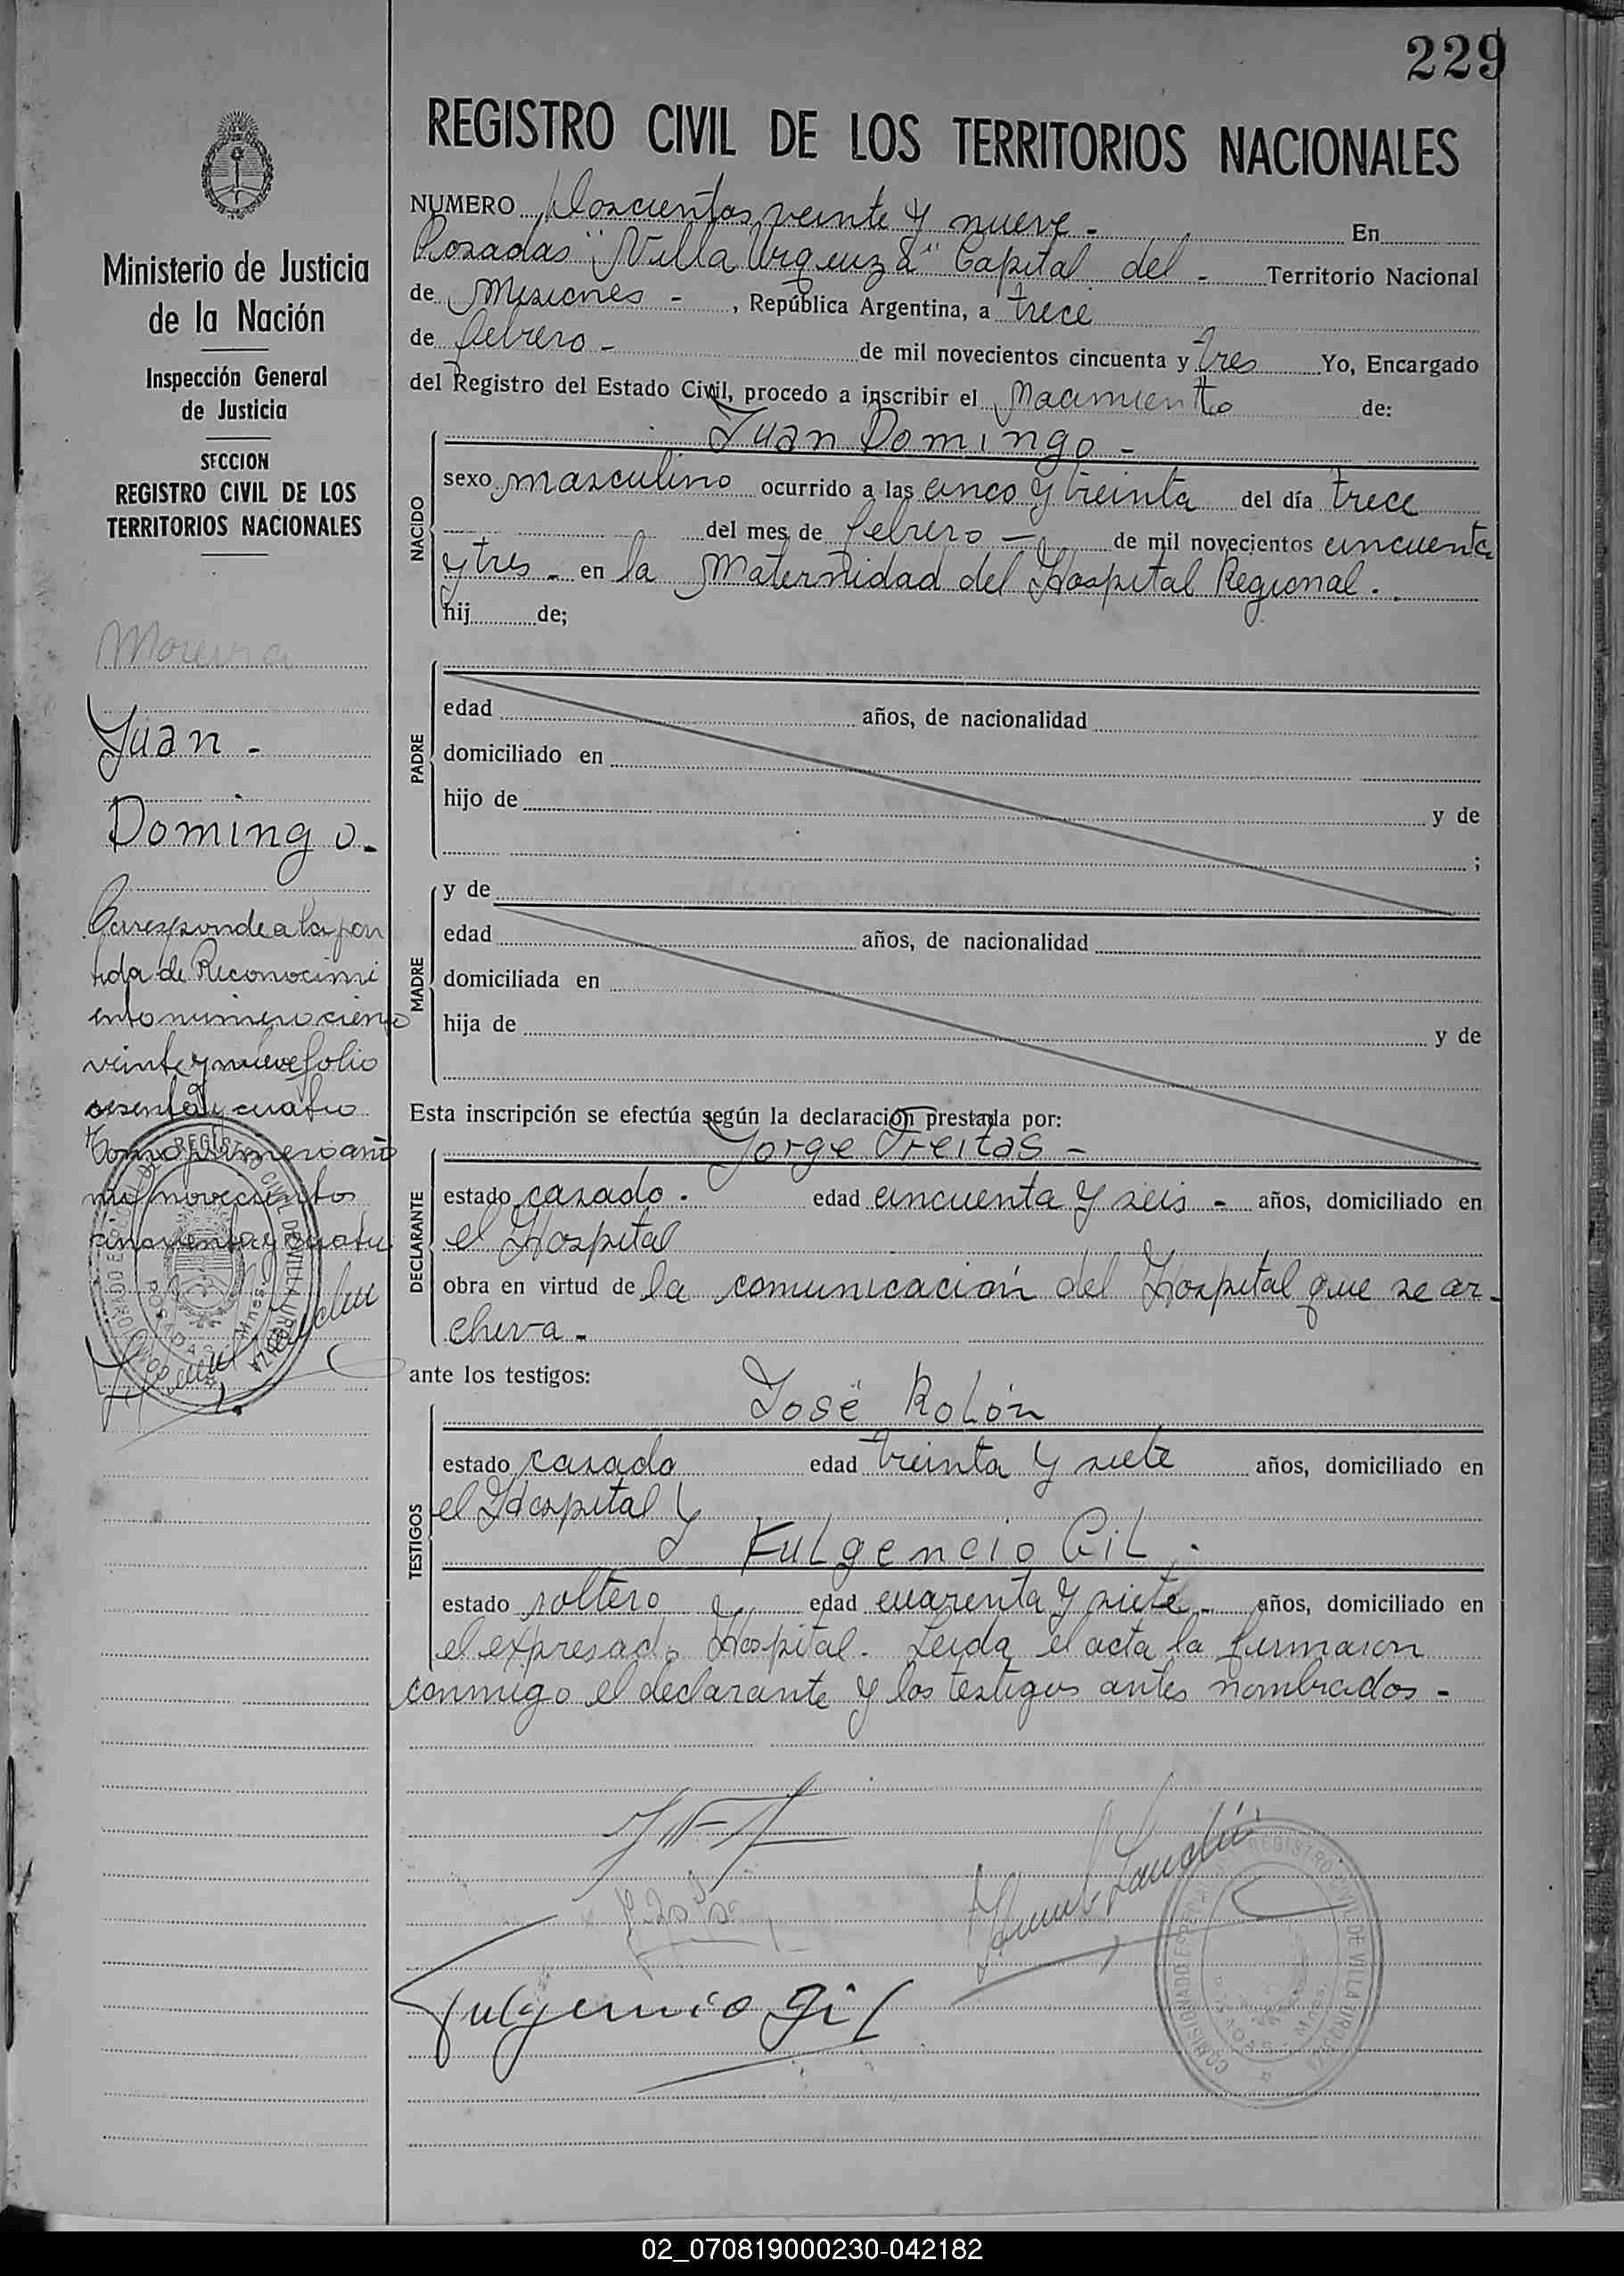 229
REGISTRO CIVIL DE LOS TERRITORIOS NACIONALES
NUMERO Doscientos veinte y nueve - En
Posadas "Villa Urquiza" Capital del - Territorio Nacional
de Misiones - , República Argentina, a trece
de febrero - de mil novecientos cincuenta y tres Yo, Encargado
del Registro del Estado Civil, procedo a inscribir el Nacimiento de:
NACIDO
Juan Domingo -
sexo masculino ocurrido a las cinco y treinta del día trece
del mes de febrero - de mil novecientos cincuenta
y tres - en la Maternidad del Hospital Regional .
hij de;
PADRE
edad años, de nacionalidad
domiciliado en
hijo de y de
;
MADRE
y de
edad años, de nacionalidad
domiciliada en
hija de y de
Esta inscripción se efectúa según la declaración prestada por:
DECLARANTE
Jorge Freitas -
estado casado . edad cincuenta y seis - años, domiciliado en
el Hospital
obra en virtud de la comunicación del Hospital que se ar-
chiva -
ante los testigos:
TESTIGOS
José Rolón
estado casado edad treinta y siete años, domiciliado en
el Hospital y
y Fulgencio Gil .
estado soltero edad cuarenta y siete - años, domiciliado en
el expresado Hospital. Leida el acta la firmaron
conmigo el declarante y los testigos antes nombrados -
Fulgencio Gil
COMISIONADO ESPECIAL REGISTRO CIVIL DE VILLA URQUIZA
POSADAS - Mnes.
Ministerio de Justicia
de la Nación
Inspección General
de Justicia
SECCION
REGISTRO CIVIL DE LOS
TERRITORIOS NACIONALES
Moreira
Juan -
Domingo -
Corresponde a la par
tida de Reconocimi
ento número ciento
veinte y nueve folio
sesenta y cuatro
Tomo primero año
mil novecientos
cincuenta y cuatro
REGISTRO CIVIL DE VILLA URQUIZA
POSADAS Mnes.
02_070819000230-042182